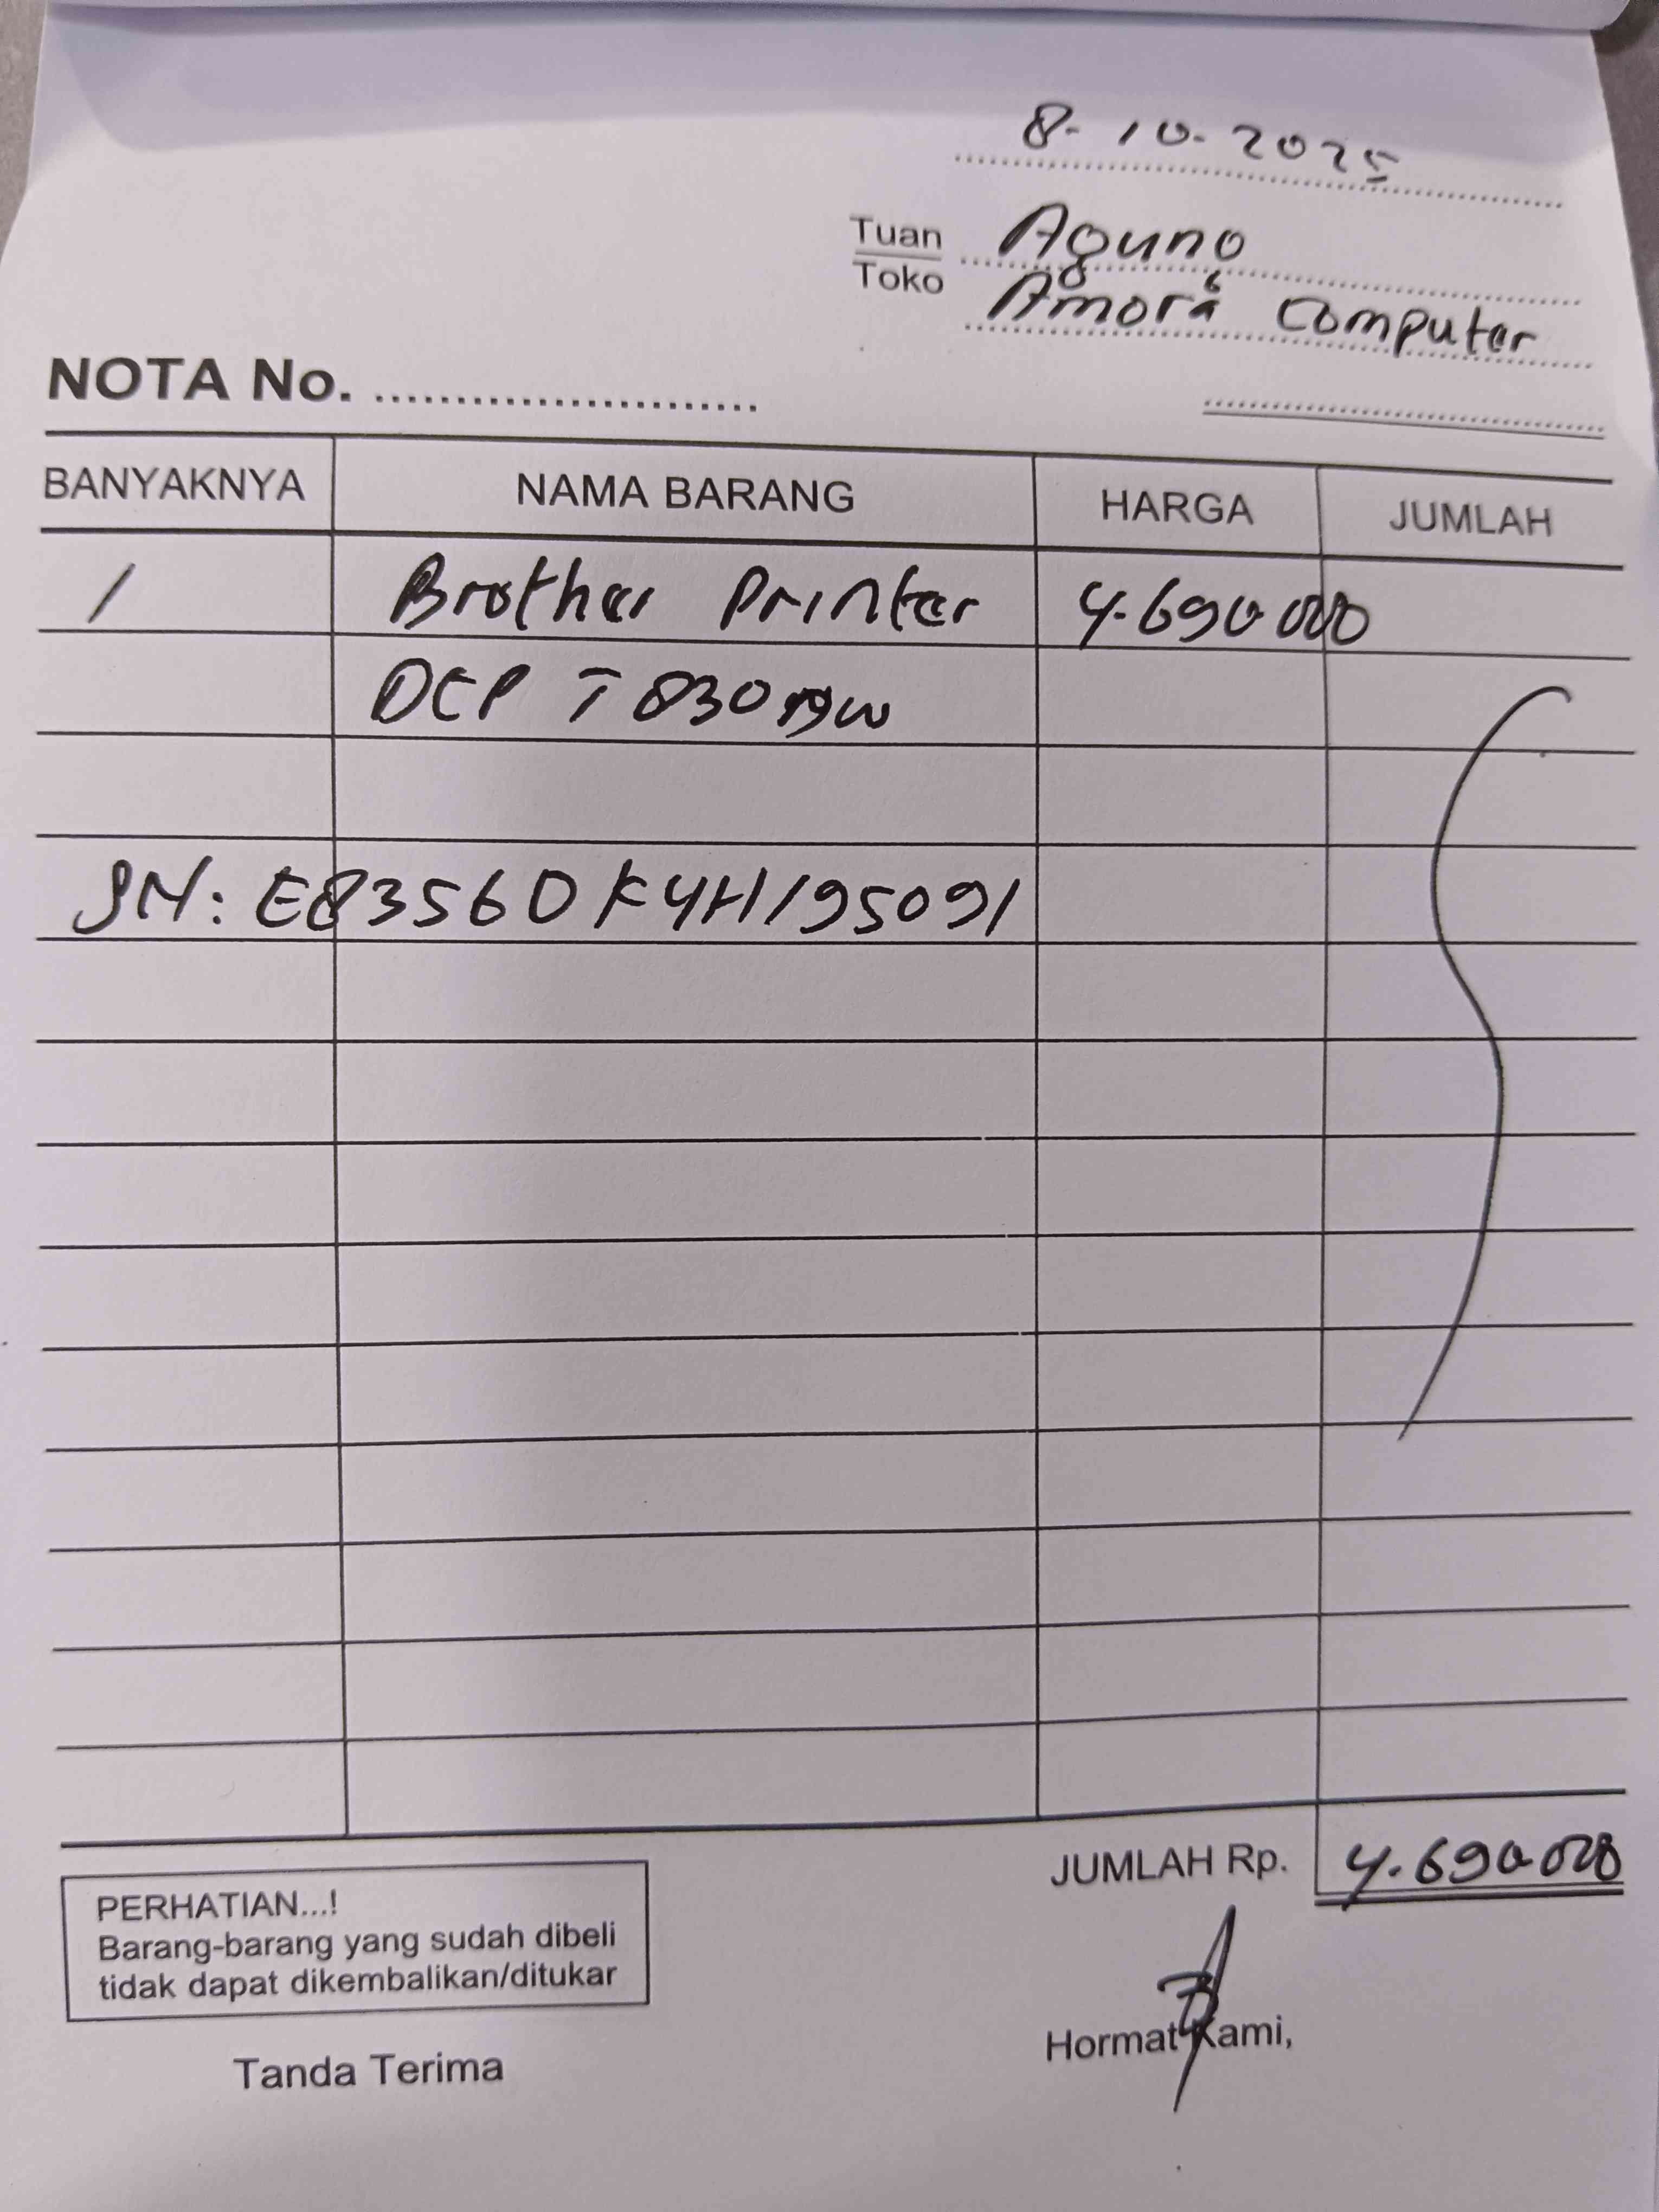 8-10-2025
Tuan Agung
Toko Amora Computer
NOTA No. ........................
BANYAKNYA NAMA BARANG HARGA JUMLAH
1 Brother Printer 4.690.000
DCP T830DW
SN: E83560K4H195091
JUMLAH Rp. 4.690.000
PERHATIAN...!
Barang-barang yang sudah dibeli
tidak dapat dikembalikan/ditukar
Tanda Terima Hormat Kami,